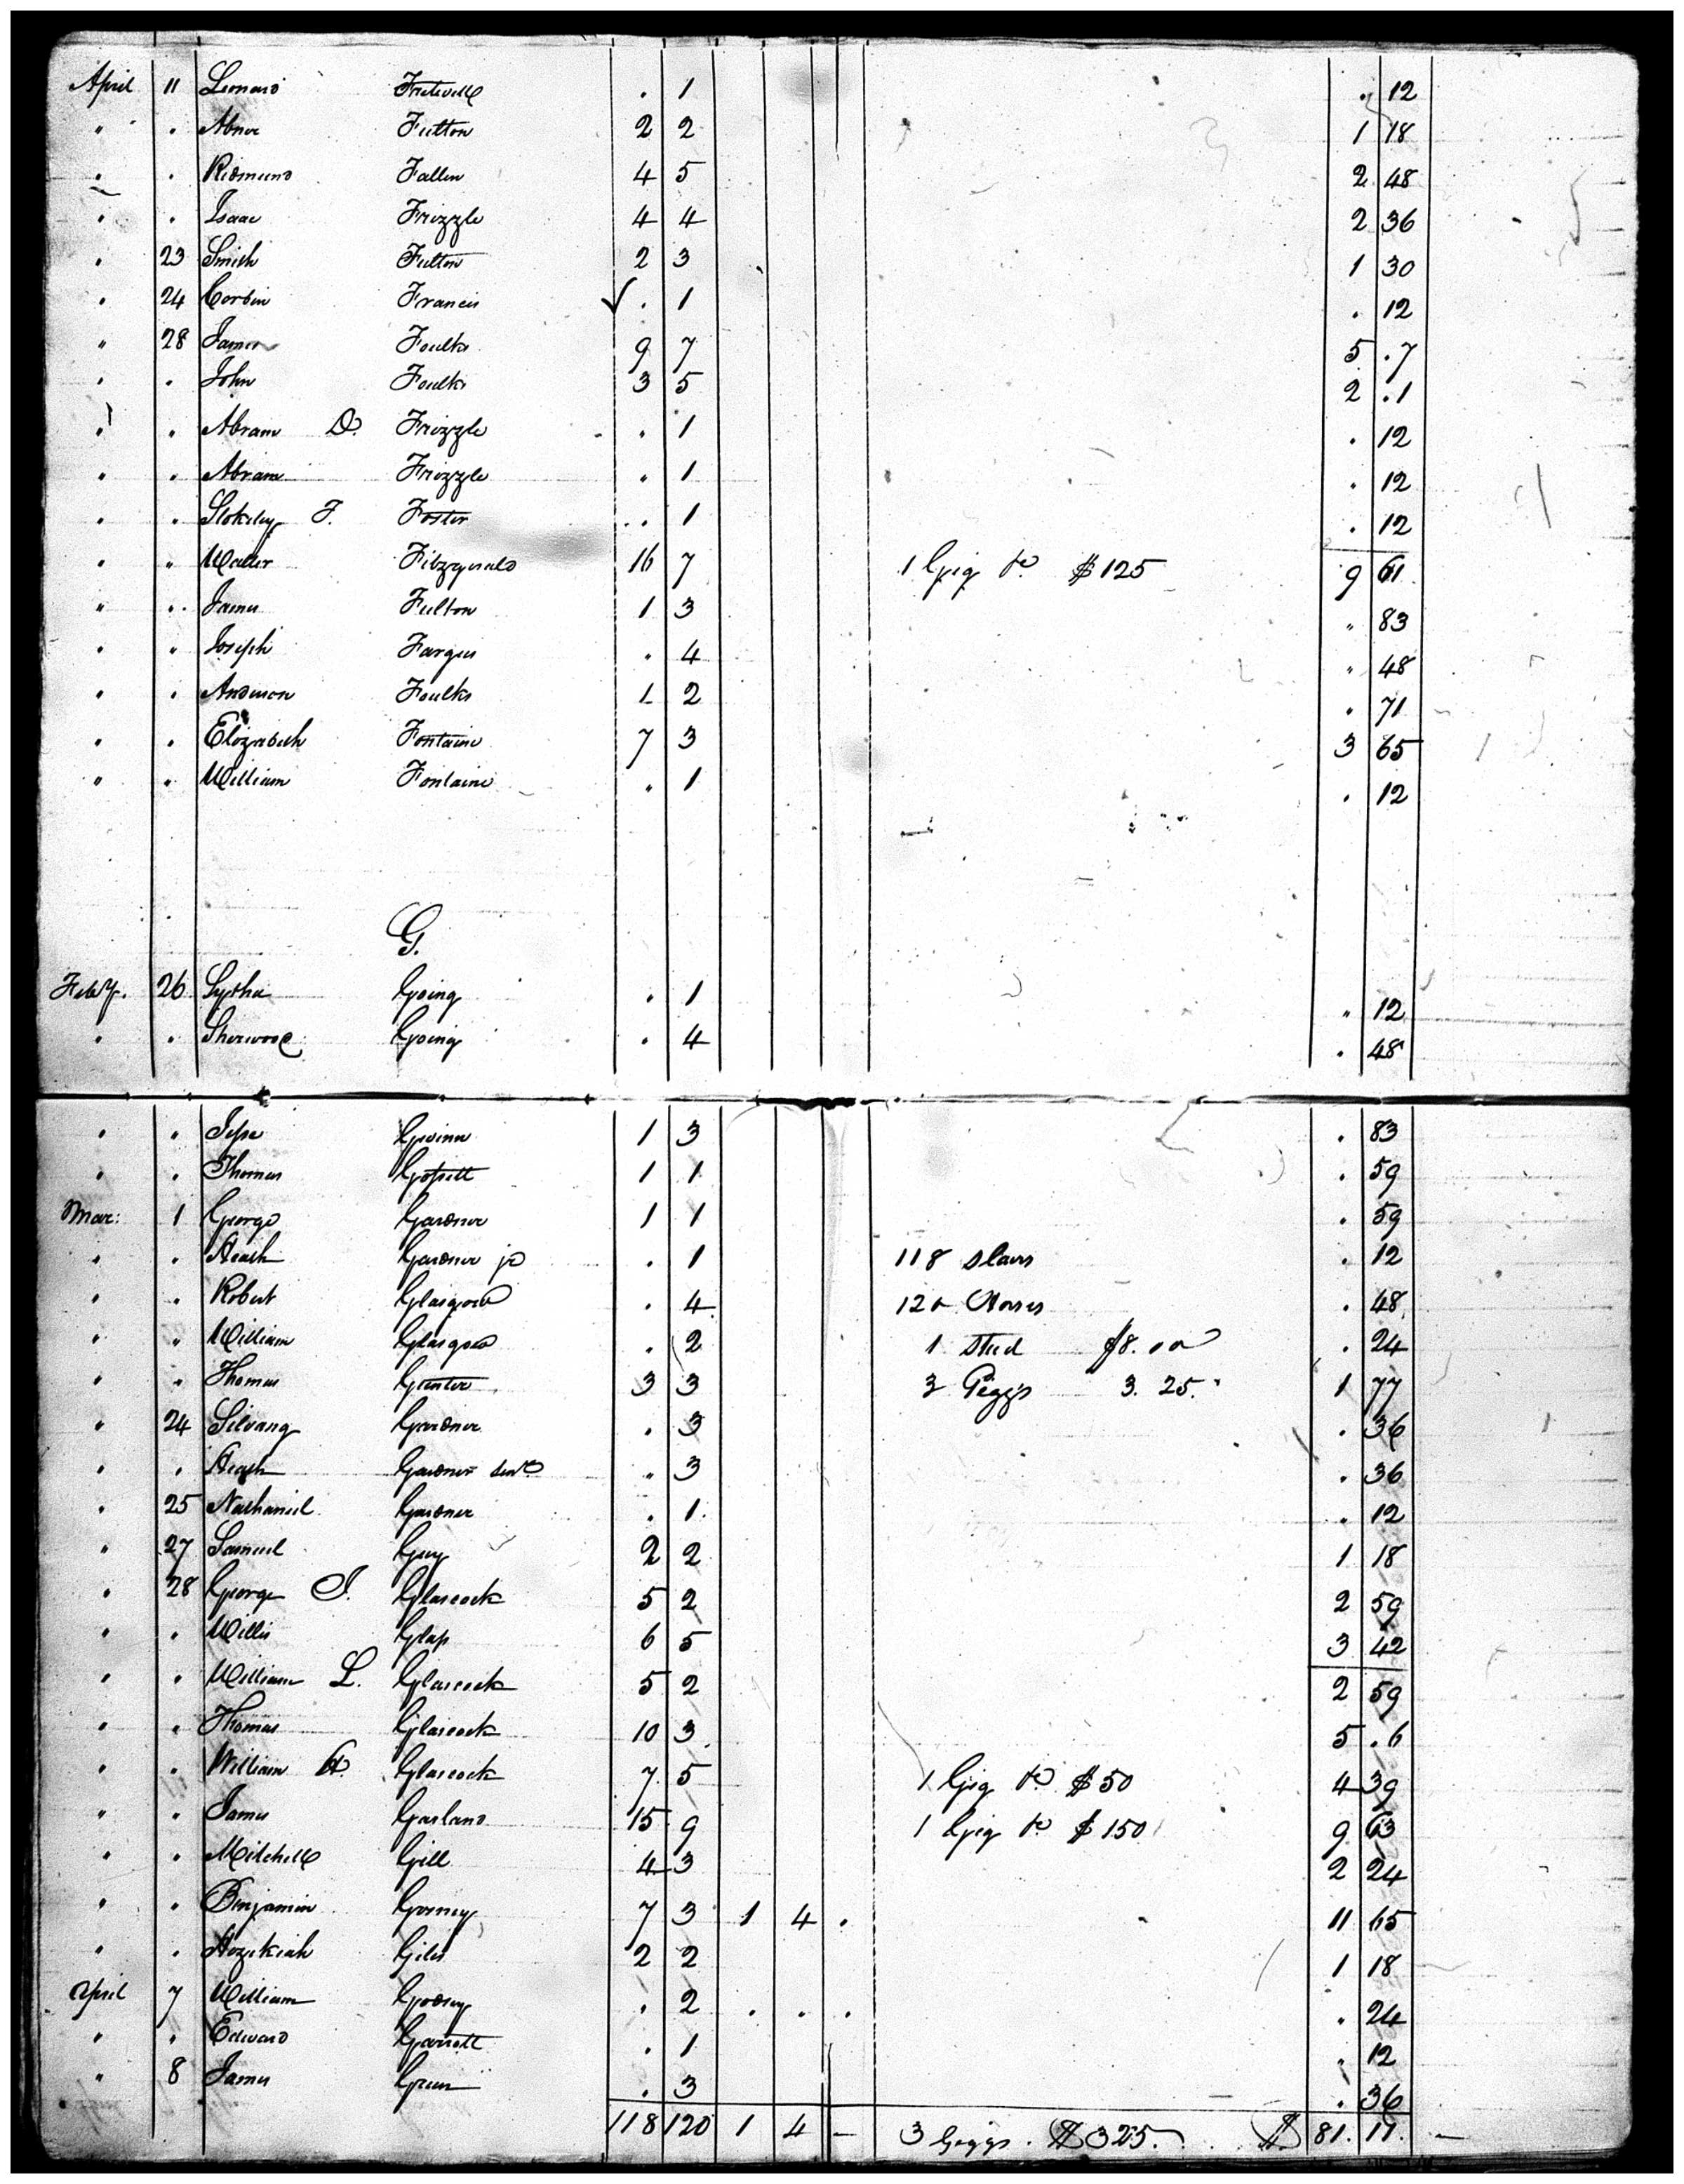 April 11 Leonard Fretwell . 1 . 12
" . Abner Fulton 2 2 1 18
" . Redmund Fallen 4 5 2 48
" . Isaac Frizzle 4 4 2 36
" 23 Smith Fulton 2 3 1 30
" 24 Corbin Francis ✓ . 1 . 12
" 28 James Foulks 9 7 5 .7
" . John Foulks 3 5 2 .1
" . Abram D. Frizzle . 1 . 12
" . Abram Frizzle " 1 . 12
" " Stokeley F. Foster . 1 . 12
" " Walter Fitzgerald 16 7 1 Gig do $125 9 61
" " James Fulton 1 3 " 83
" " Joseph Fargus " 4 " 48
" " Anderson Foulks 1 2 . 71
" . Elizabeth Fontaine 7 3 3 65
" " William Fontaine " 1 . 12
G.
Feby. 26 Going . 1 " 12
" . Sherwood Going . 4 . 48
" " Jesse Gwinn 1 3 . 83
" " Thomas Gossett 1 1 . 59
Mar: 1 George Gardner 1 1 . 59
" . Heath Gardner jr . 1 118 slaves . 12
" . Robert Glasgow . 4 120 Horses . 48
" " William Glasgow . 2 1 stud $8.00 . 24
" " Thomas Gunter 3 3 3 Giggs 3.25 1 77
" 24 Silvany Gardner . 3 . 36
" . Heath Gardner senr " 3 . 36
" 25 Nathaniel Gardner . 1 . 12
" 27 Samuel Guy 2 2 1 18
" 28 George I. Glascock 5 2 2 59
" . Willis Glass 6 5 3 42
" " William L. Glascock 5 2 2 59
" " Thomas Glascock 10 3 5 .6
" . William Glascock 7 5 1 Gig do $50 4 39
" " James Garland 15 9 1 Gig do $150 9 63
" " Mitchell Gill 4 3 2 24
" " Benjamin 7 3 1 4 . 11 65
" . Hezekiah Giles 2 2 1 18
April 7 William Godsey . 2 . . . " 24
" " Edward Garrott . 1 " 12
" 8 James Green . 3 . 36
118 120 1 4 – 3 Giggs. $325. $ 81. 17.